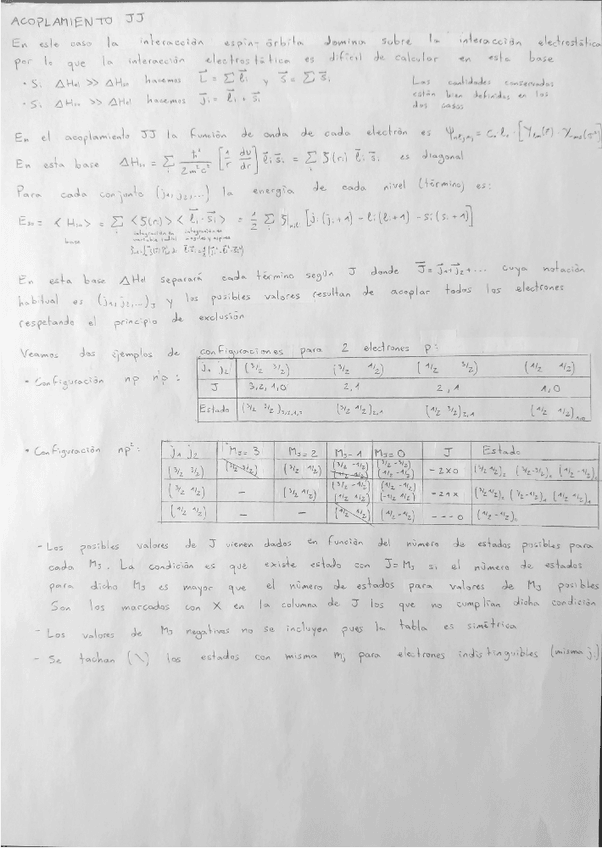 ACOPLAMIENTO JJ
En este caso la interacción espín-órbita domina sobre la interacción electrostática
por lo que la interacción electrostática es difícil de calcular en esta base
• Si ΔHel >> ΔHso hacemos L⃗ = Σ l⃗i y S⃗ = Σ s⃗i
• Si ΔHso >> ΔHel hacemos j⃗i = l⃗i + s⃗i
Las cantidades conservadas
están bien definidas en los
dos casos
En el acoplamiento JJ la función de onda de cada electrón es
En esta base ΔHso = Σ ħ²/2m²c² [1/r dU/dr] l⃗i s⃗i = Σ ξ(ri) l⃗i s⃗i es diagonal
Para cada conjunto (j1, j2, ...) la energía de cada nivel (término) es:
Eso = <Hso> = Σ <ξ(r)> <l⃗i · s⃗i> = 1/2 Σ ξ|nili [ji(ji+1) - li(li+1) - si(si+1)]
base
En esta base ΔHel separará cada término según J donde J⃗ = j⃗1 + j⃗2 + ... cuya notación
habitual es (j1, j2, ...)J y los posibles valores resultan de acoplar todos los electrones
respetando el principio de exclusión
Veamos dos ejemplos de configuraciones para 2 electrones p:
• Configuración np n'p:
j1 j2 (3/2 3/2) (3/2 1/2) (1/2 3/2) (1/2 1/2)
J 3,2,1,0 2,1 2,1 1,0
Estado (3/2 3/2)3,2,1,0 (3/2 1/2)2,1 (1/2 3/2)2,1 (1/2 1/2)1,0
• Configuración np²:
j1 j2 MJ=3 MJ=2 MJ=1 MJ=0 J Estado
(3/2 3/2) (3/2 3/2) (3/2 1/2) (3/2 -1/2) (3/2 -3/2) (1/2 -1/2) - 2 X 0
(3/2 1/2) - (3/2 1/2) (3/2 -1/2) (1/2 1/2) (1/2 -1/2) (-1/2 1/2) - 2 1 X
(1/2 1/2) - - (1/2 1/2) (1/2 -1/2) - - - 0 (1/2 -1/2)0
- Los posibles valores de J vienen dados en función del número de estados posibles para
cada MJ. La condición es que existe estado con J=MJ si el número de estados
para dicho MJ es mayor que el número de estados para valores de MJ posibles
Son los marcados con X en la columna de J los que no cumplían dicha condición
- Los valores de MJ negativas no se incluyen pues la tabla es simétrica
- Se tachan (\) los estados con misma mj para electrones indistinguibles (misma j)